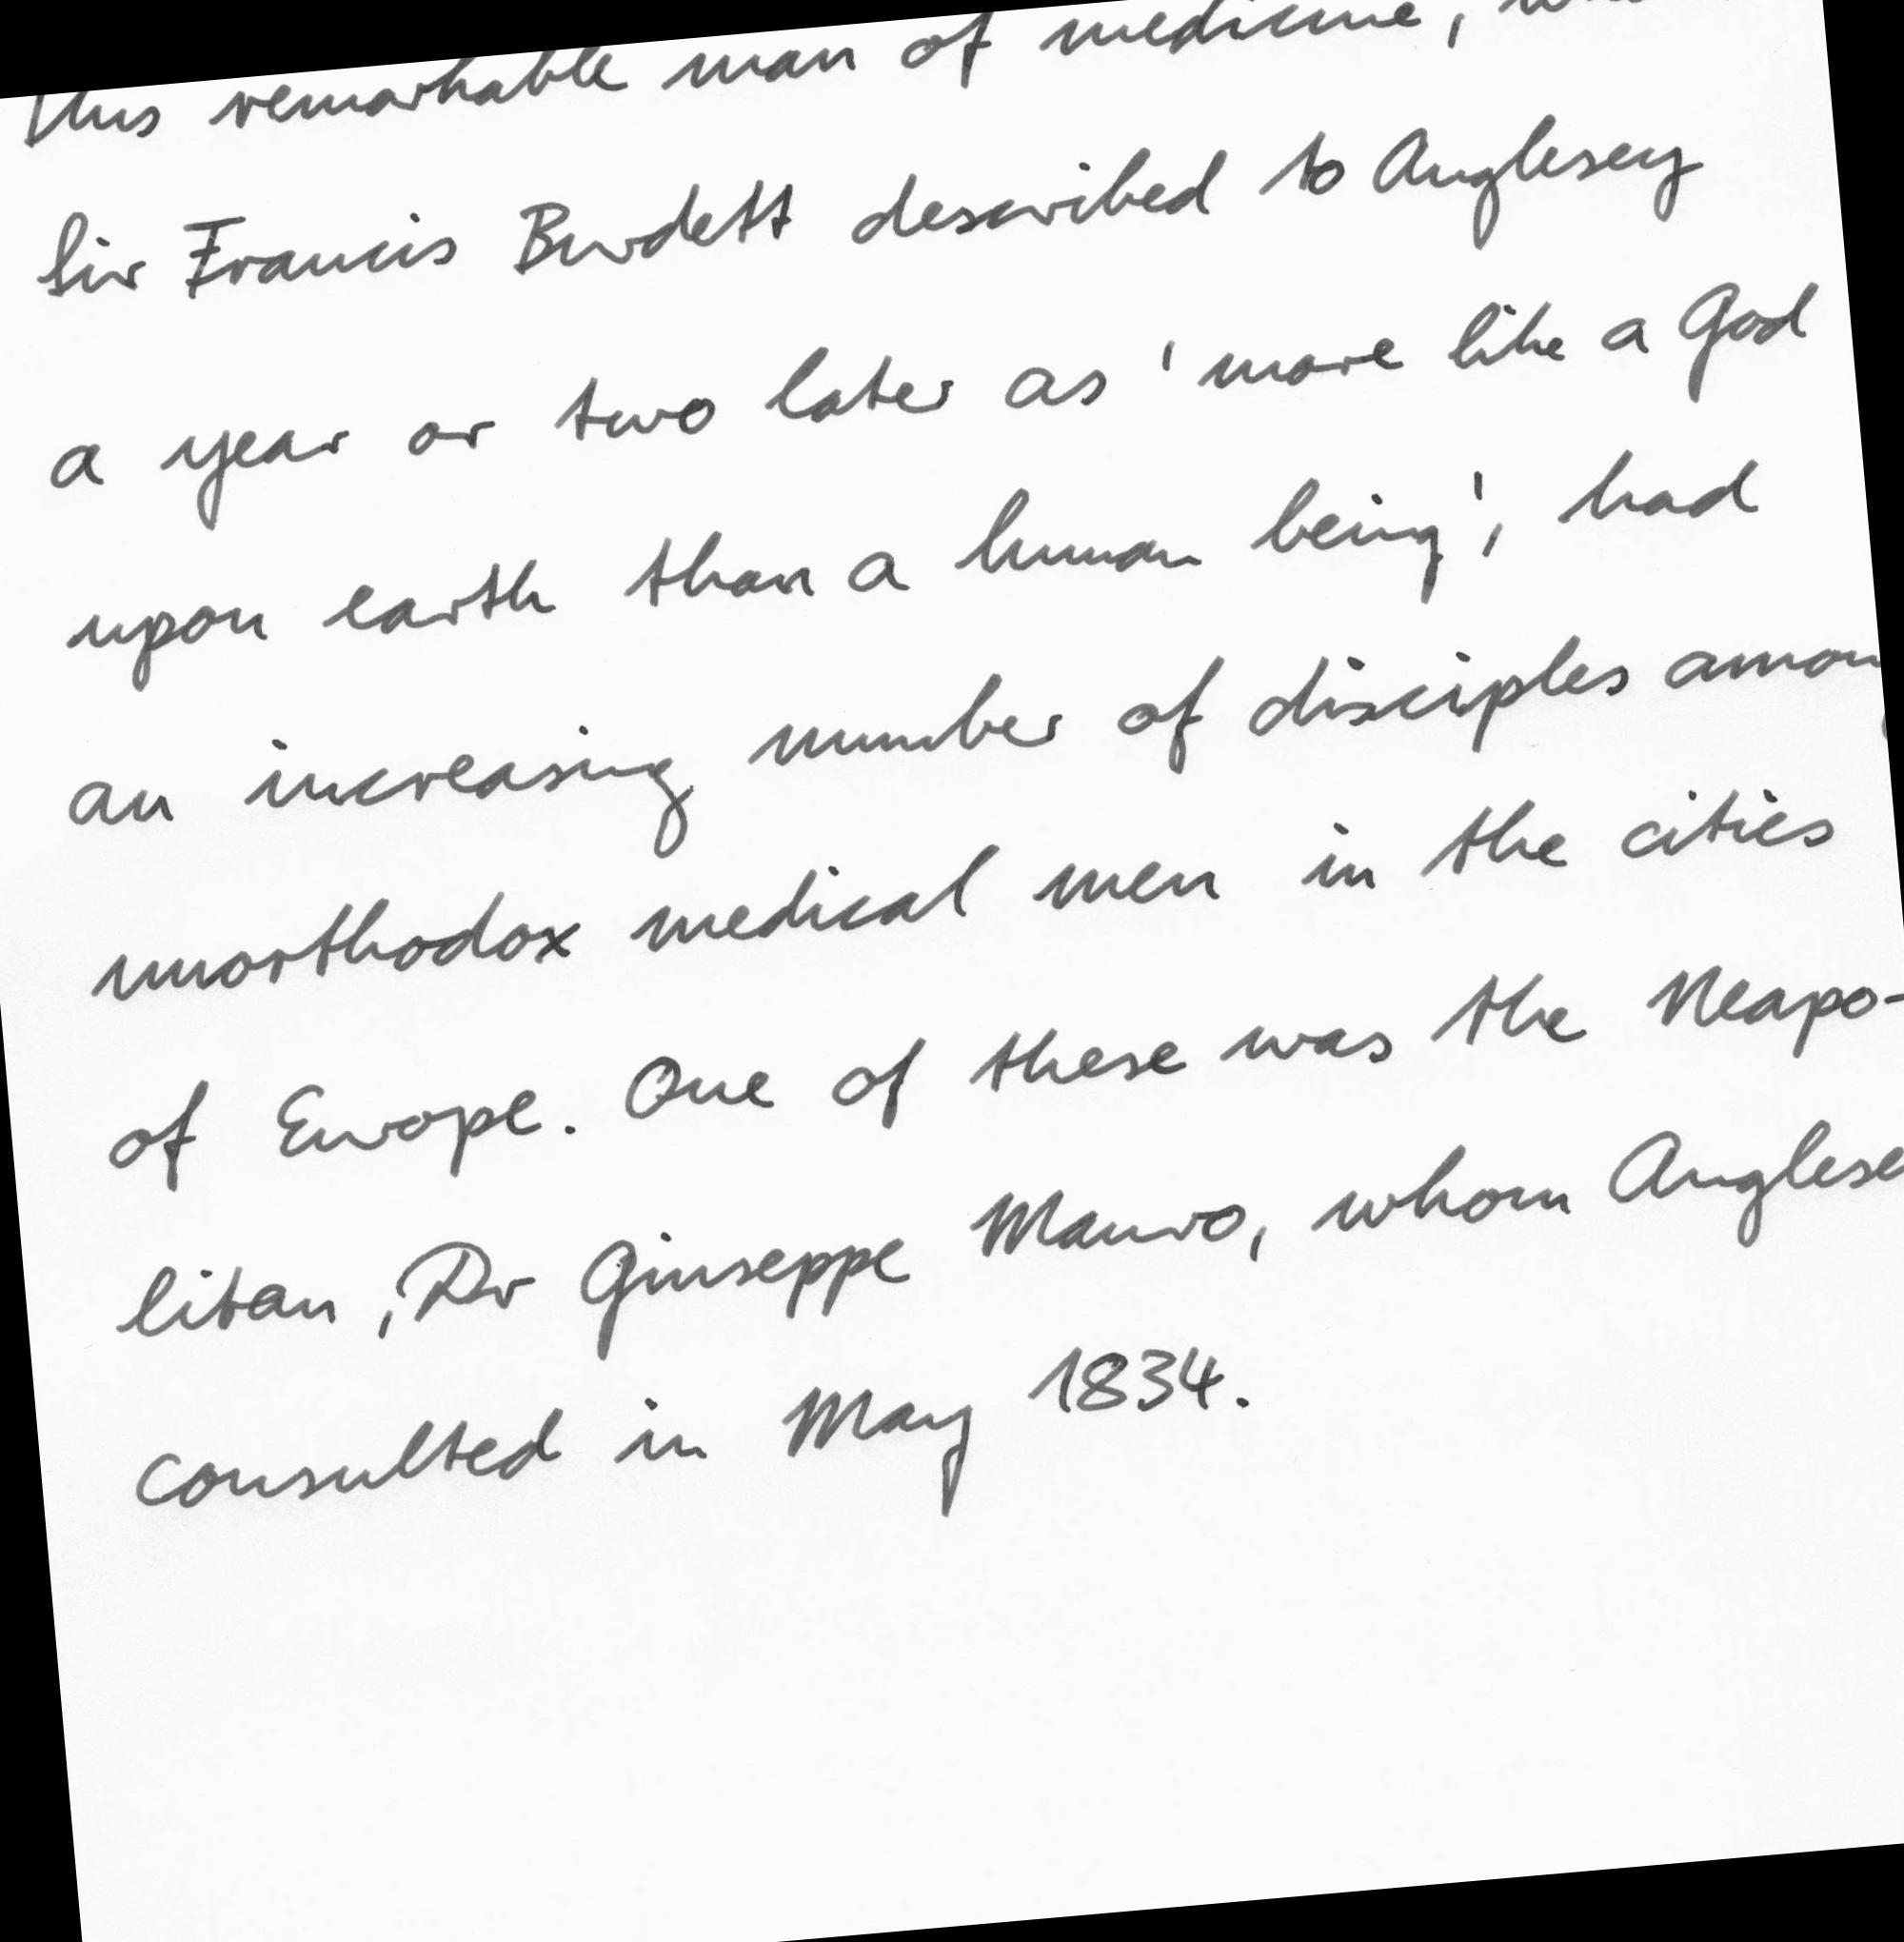 This remarkable man of medicine,
Sir Francis Burdett described to Anglesey
a year or two later as 'more like a God
upon earth than a human being', had
an increasing number of disciples among
unorthodox medical men in the cities
of Europe. One of these was the Neapo-
litan, Dr Giuseppe Mauro, whom Anglese
consulted in May 1834.